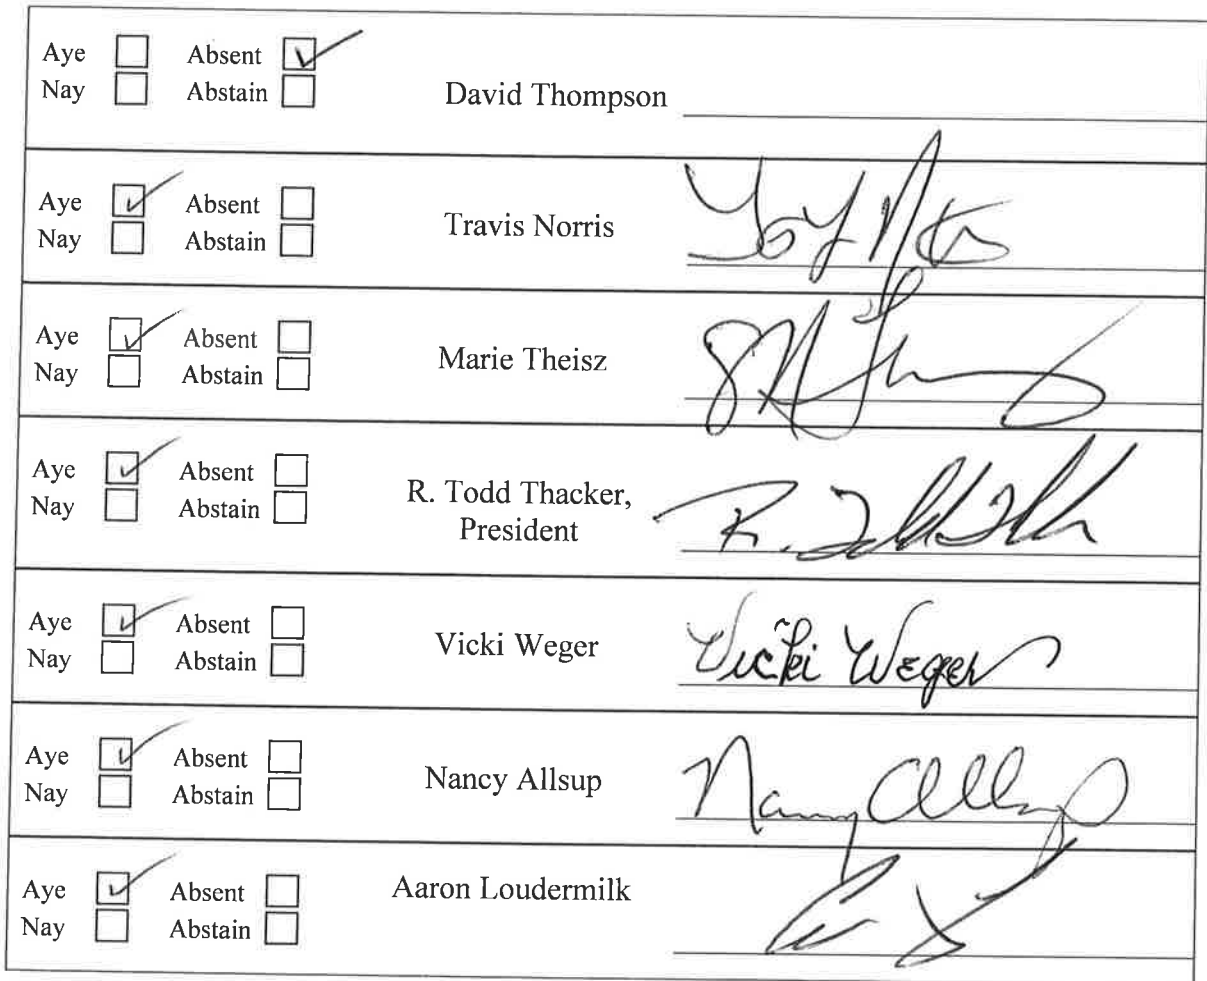 Aye Absent
Nay Abstain
David Thompson
Aye Absent
Nay Abstain
Travis Norris
Aye Absent
Nay Abstain
Marie Theisz
Aye Absent
Nay Abstain
R. Todd Thacker,
President
R. Todd
Aye Absent
Nay Abstain
Vicki Weger
Vicki Weger
Aye Absent
Nay Abstain
Nancy Allsup
Nancy Allsup
Aye Absent
Nay Abstain
Aaron Loudermilk